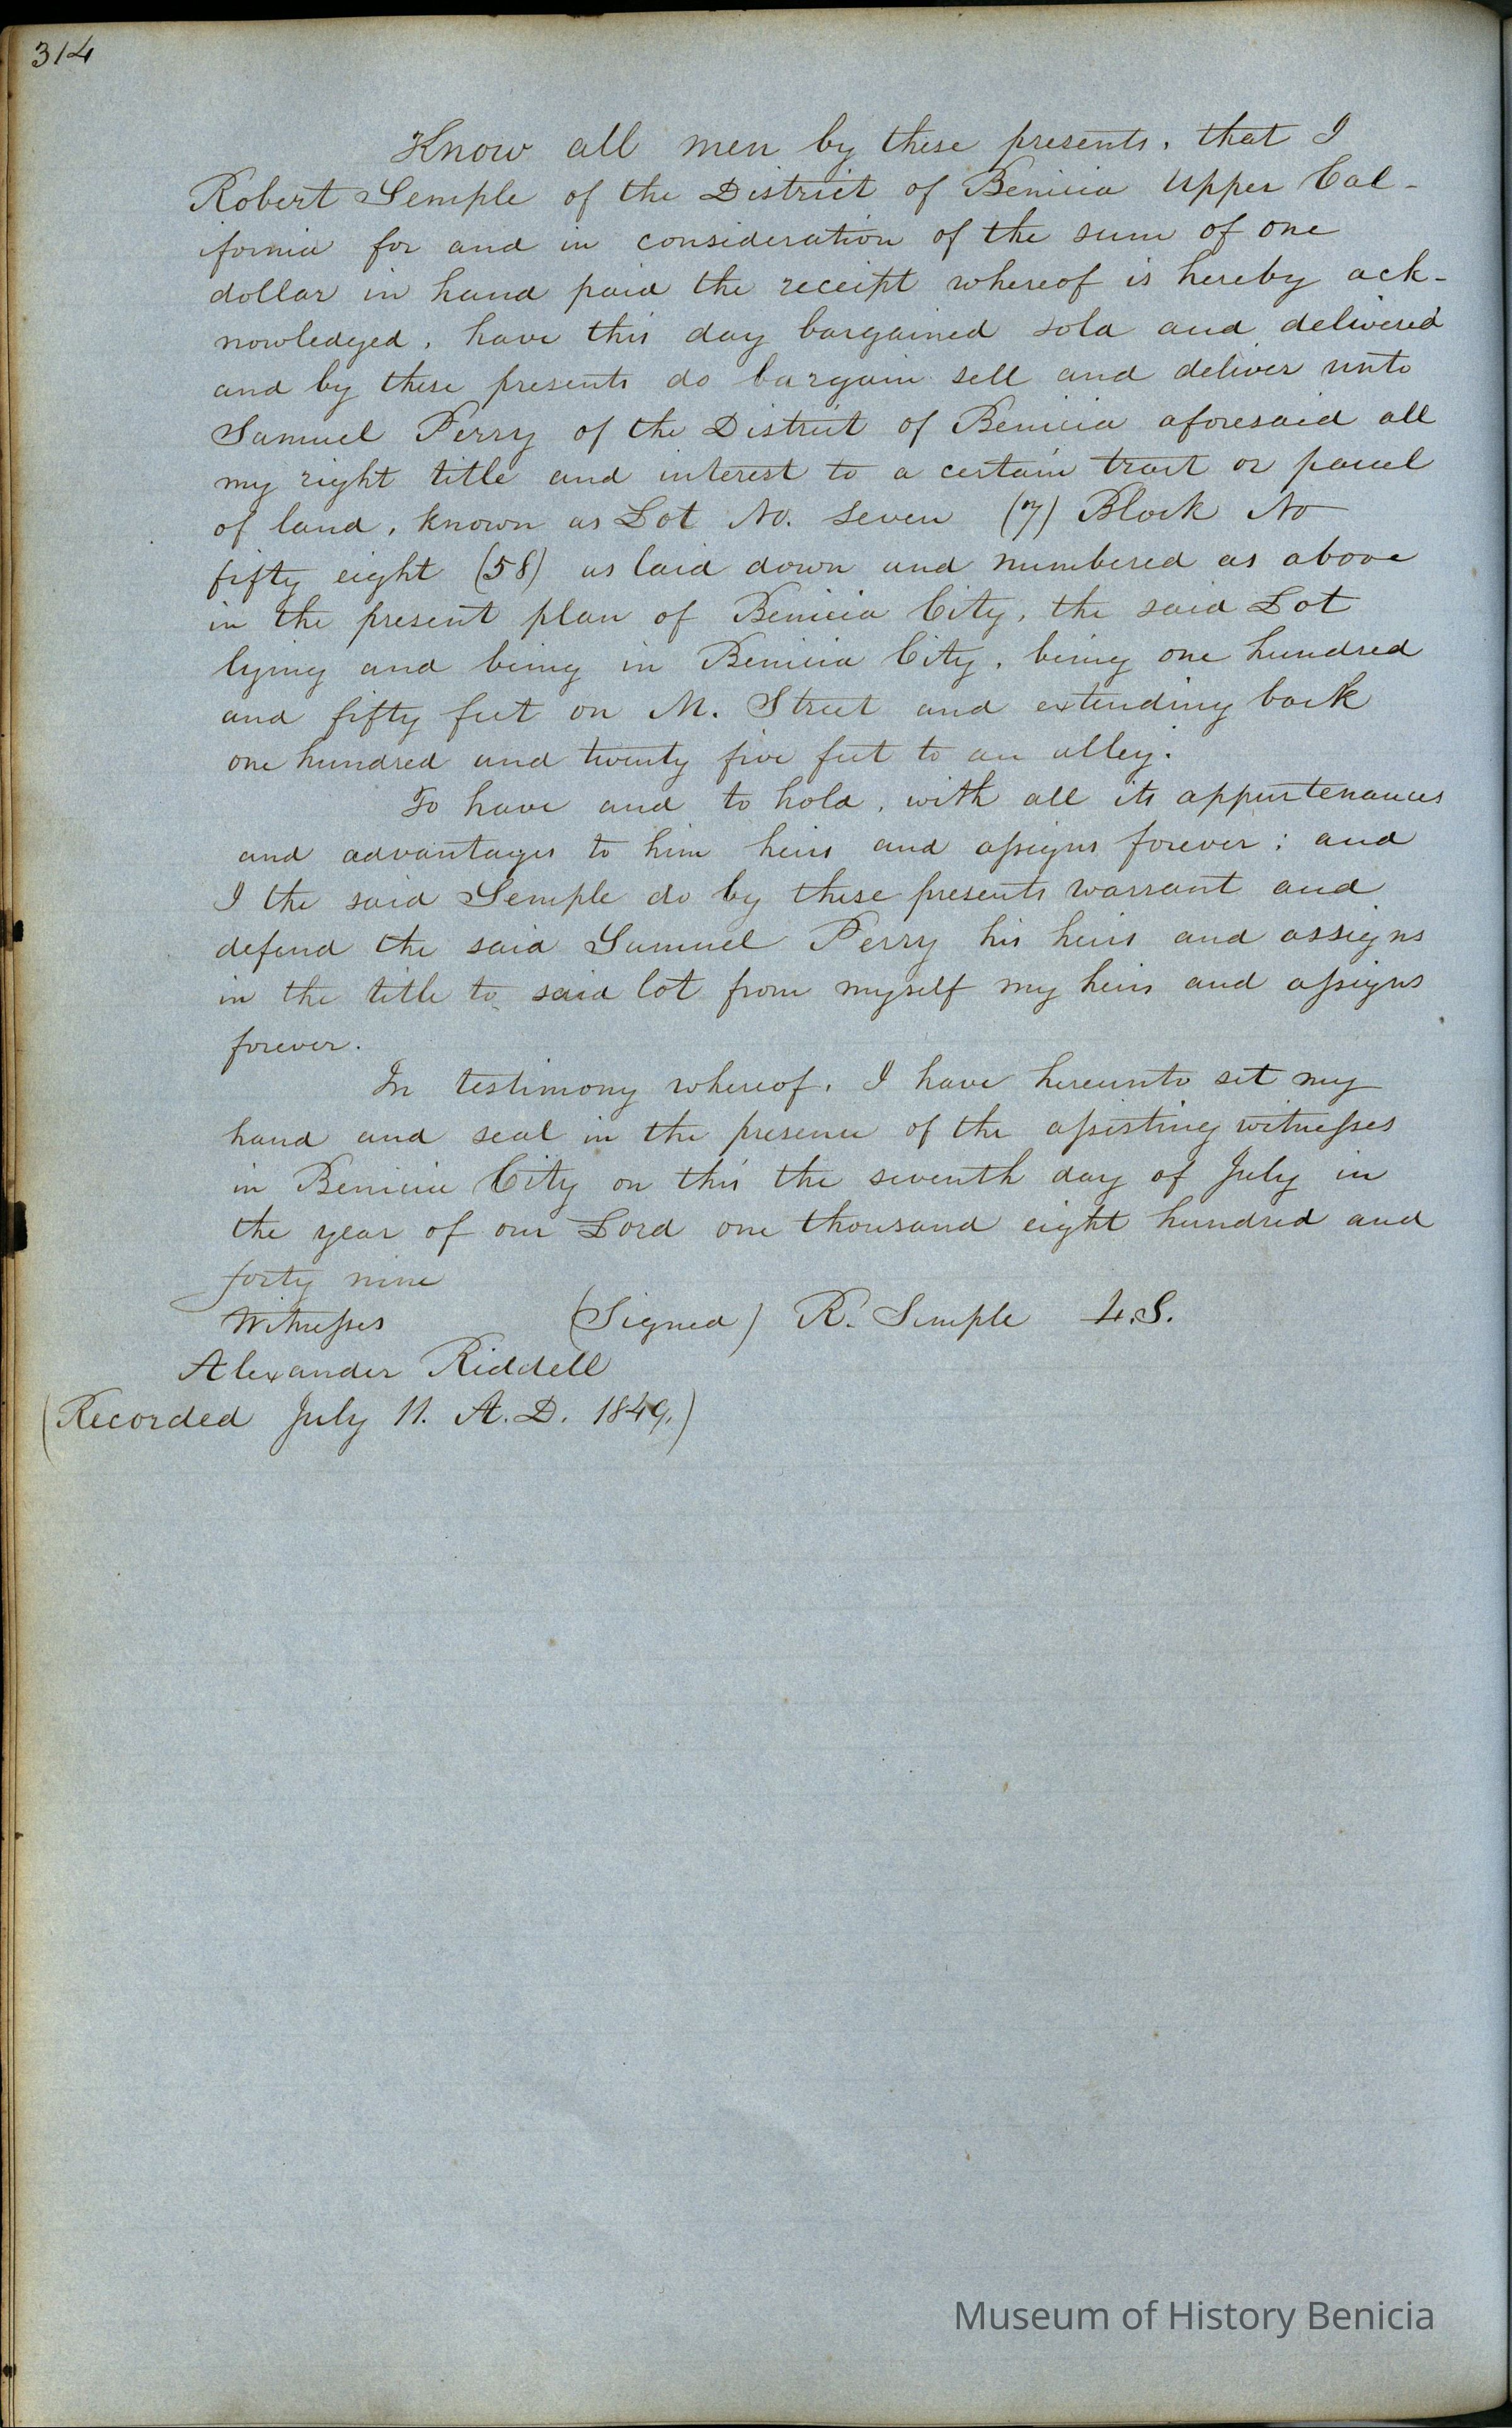 314
Know all men by these presents, that I
Robert Semple of the District of Benicia Upper Cal-
ifornia for and in consideration of the sum of one
dollar in hand paid the receipt whereof is hereby ack-
nowledged, have this day bargained sold and delivered
and by these presents do bargain sell and deliver unto
Samuel Perry of the District of Benicia aforesaid all
my right title and interest to a certain tract or parcel
of land, known as Lot No. Seven (7) Block No
fifty eight (58) as laid down and numbered as above
in the present plan of Benicia City, the said Lot
lying and being in Benicia City, being one hundred
and fifty feet on M. Street and extending back
one hundred and twenty five feet to an alley.
To have and to hold, with all its appurtenances
and advantages to him heirs and assigns forever; and
I the said Semple do by these presents warrant and
defend the said Samuel Perry his heirs and assigns
in the title to said lot from myself my heirs and assigns
forever.
In testimony whereof, I have hereunto set my
hand and seal in the presence of the assisting witnesses
in Benicia City on this the seventh day of July in
the year of our Lord one thousand eight hundred and
forty nine
Witnesses (Signed) R. Semple L.S.
Alexander Riddell
(Recorded July 11. A.D. 1849.)
Museum of History Benicia